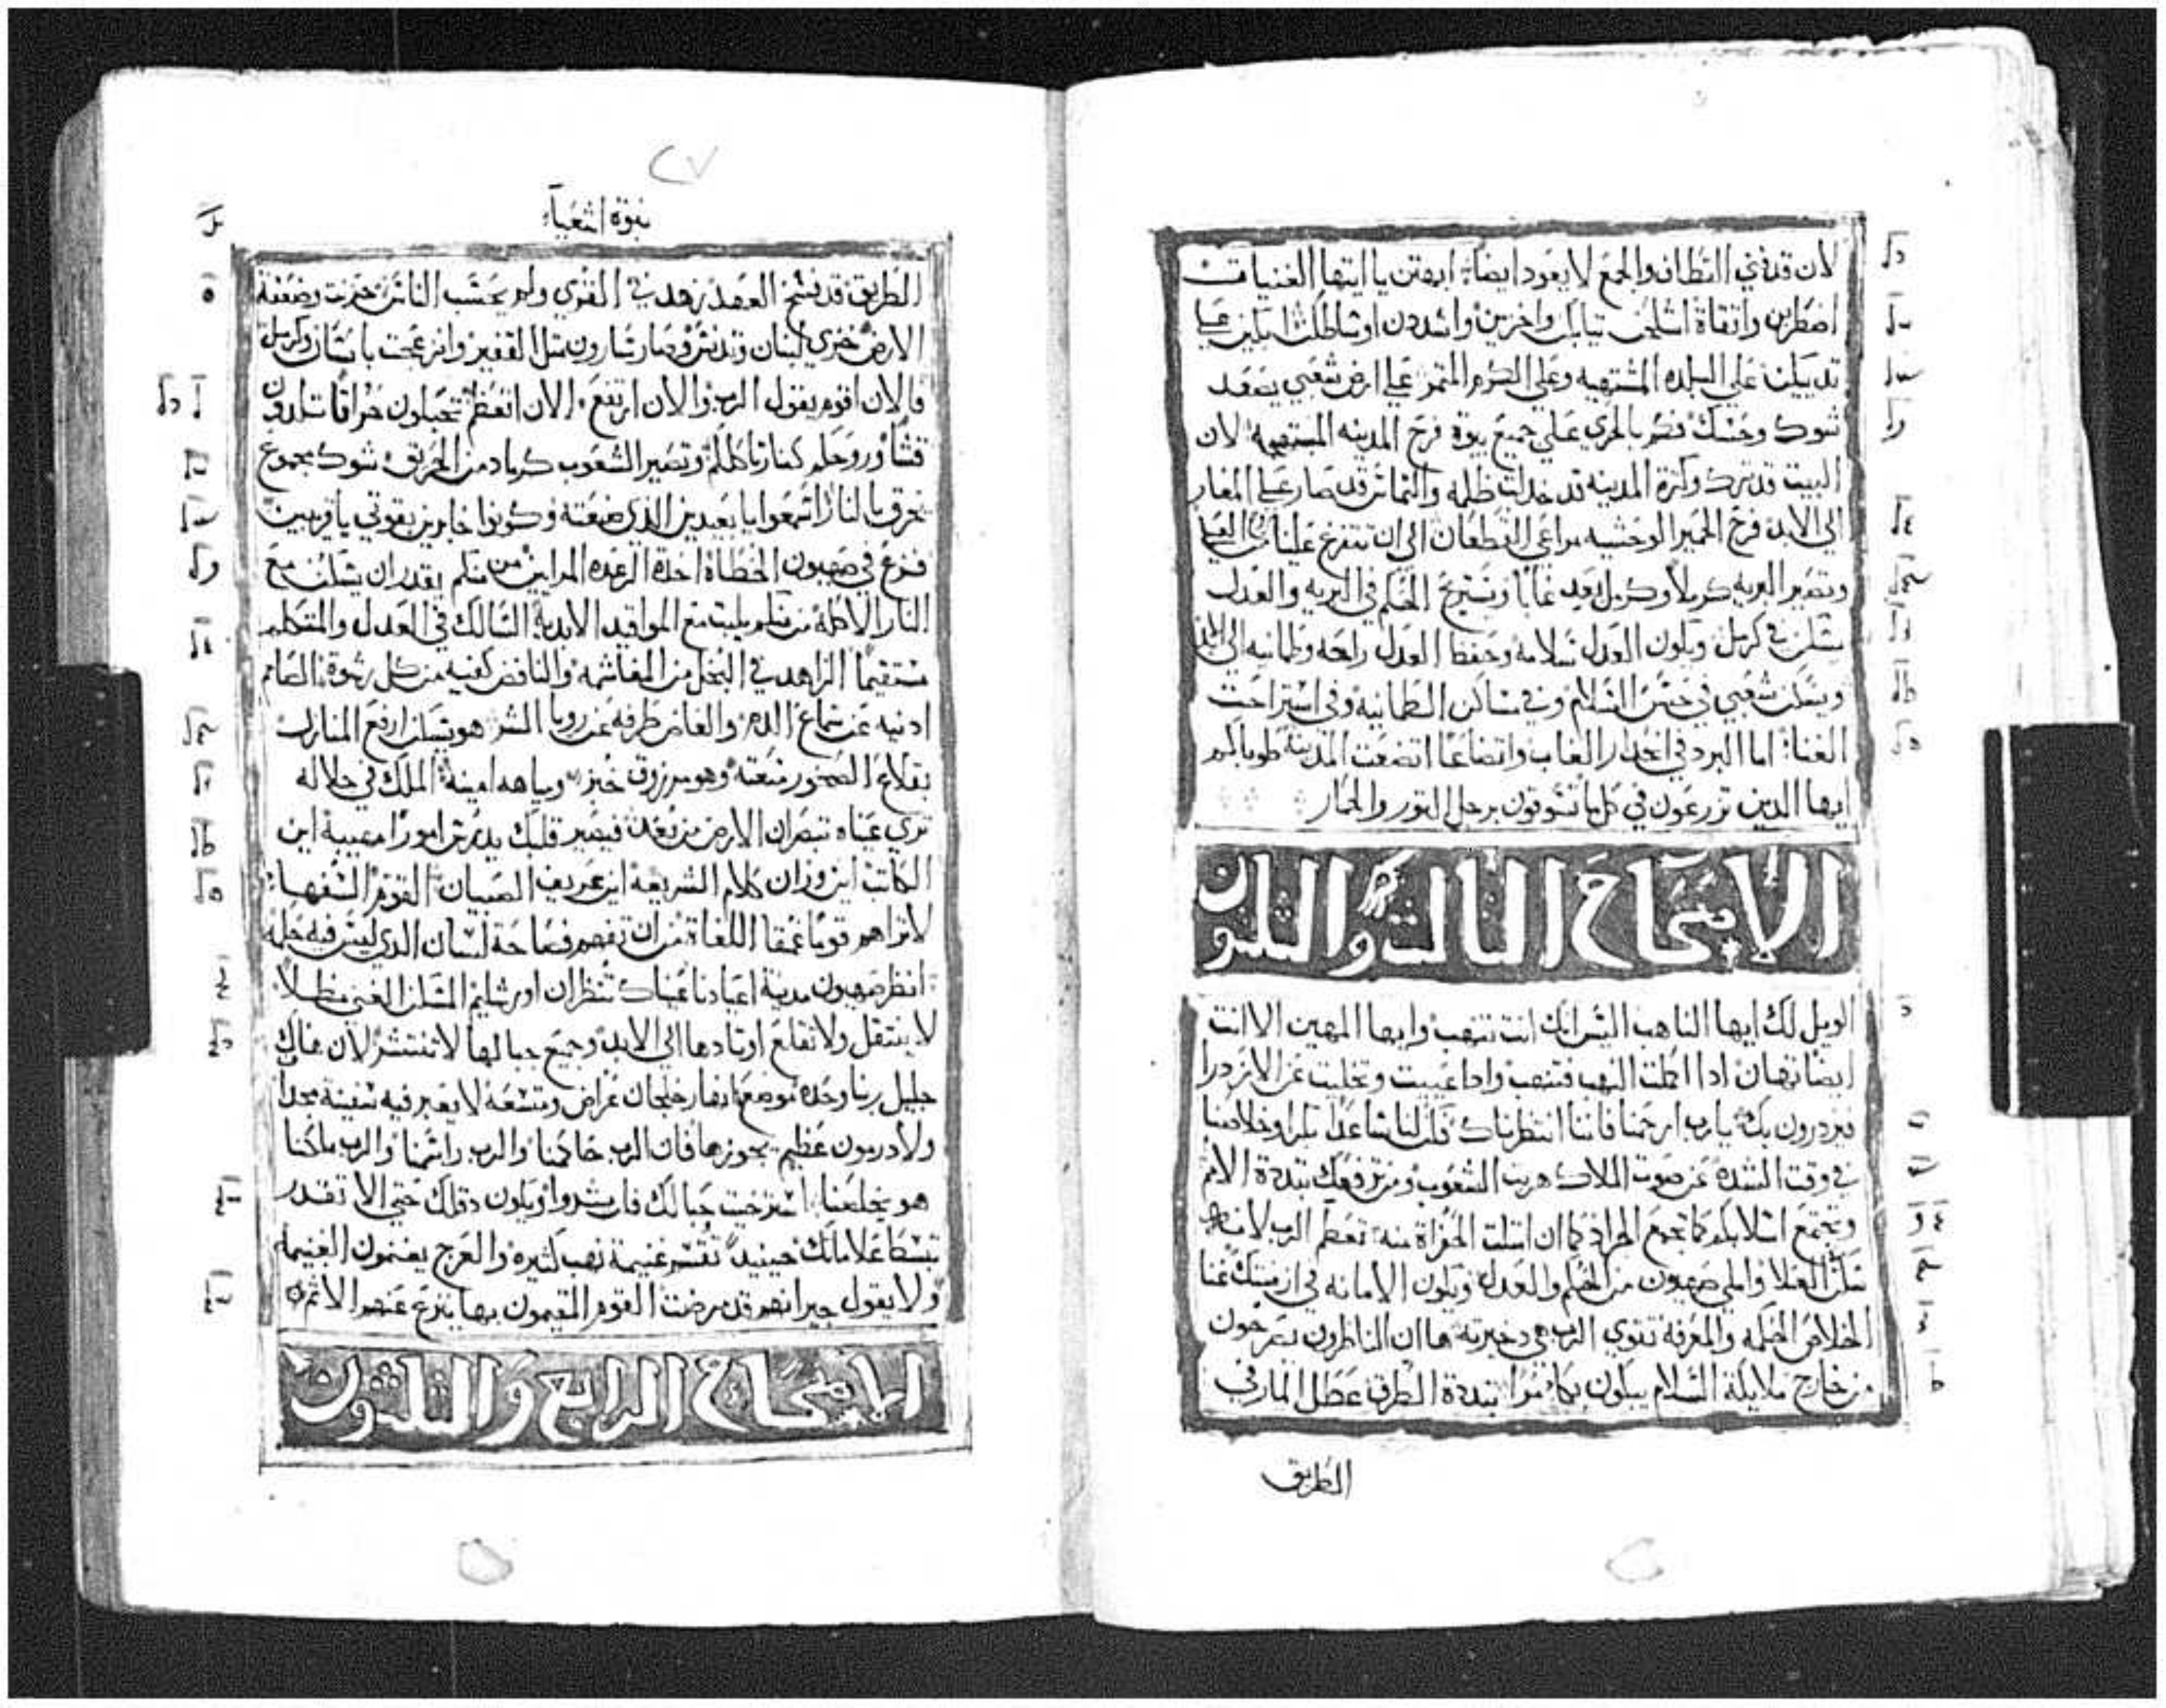 لان قد فني القطاف والجمع لا يعود ايضا ابهتن يا ايتها الغنيات
اضطربن واثقاة اشلحن تيابكن واخزين واشددن اوساطكن ابكين علي
تديكن علي البلده المشتهيه وعلي الكرم المتمر علي ارض شعبي يصعد
شوك وحسك فكم بالحري علي جميع بيوة فرح المدينه المبتهجه لان
البيت قد ترك وكثرة المدينه قد خدلت ظلمه والتماثر قد صار علي المغاير
الي الابد فرح الحمير الوحشيه مراعي القطعان الي ان تتفرغ علينا من العلا
وتصير البريه كرملا وكرمل يعد غابا ويستريح الحكم في البريه والعدل
يسكن في كرمل ويكون العدل سلامه وحفظ العدل راحه وطمانيه الي الابد
ويسكن شعبي في حسن السلام وفي مساكن الطمانيه وفي استراحت
الغنا اما البرد في انحدار الغاب واتضاعا اتضعت المدينة طوباكم
ايها الدين تزرعون في كل ما تسوقون برجل التور والحمار
الاصحاح الثالث والثلثون
الويل لك ايها الناهب اليس انك انت تنهب وايها المهين الا انت
ايضا تهان ادا اكملت النهب فتنهب وادا عييت وتخليت عن الازدرا
فيزدرون بك يارب ارحمنا فاننا انتظرناك كن لنا ساعدا بكرا وخلاصنا
في وقت الشده عن صوت الملاك هربت الشعوب ومن ترفعك تبددة الامم
وتجتمع اسلابكم كما تجمع الجراد كما ان امتلت الحفراة منه تعظم الرب لانه
سكن العلا والملي صهيون من الحكم والعدل ويكون الامانه في ازمنتك غنا
الخلاص الحكمه والمعرفة تقوي الرب هي دخيرته ها ان الناظرون يصرخون
من خارج ملايكة السلام يبكون بكا مرا تبددة الطرق عطل المار في
الطريق
نبوة اشعياء
الطريق قد فسخ العهد زهد في القري ولم يحسب الناس حزنت وضعفة
الارض خزي لبنان وتدنس وصار شارون مثل القفير وانزعجت باسان وكرمل
فالان اقوم يقول الرب والان ارتفع الان اتعظم تحبلون حراقا تلدون
قشا وروحكم كنار تاكلكم وتصير الشعوب كرماد من الحريق شوك مجموع
تحرق بالنار اسمعوا يا بعيدين الذي صنعته وكونوا خابرين بقوتي يا قريبين
فزع في صهيون الخطاة اخدة الرعده المرايين من منكم يقدر ان يسكن مع
النار الاكلة من منكم يلبت مع المواقيد الابدية السالك في العدل والمتكلم
مستقيما الزاهد في البخل من المغاشمه والنافض كفيه من كل رشوة الصامم
ادنيه عن سماع الدم والغامض طرفه عن رويا الشر هو يسكن ارفع المنازل
بقلاع الصخور منعته وهو مرزوق خبز ومياهه امينة الملك في جلاله
تري عيناه تبصران الارض من بعد فيصير قلبك يدرس امورا معيبة اين
الكاتب اين وزان كلام الشريعة اين عريف الصبيان القوم السفها
لا تراهم قوما عمقا اللغاة من ان تفهم فصاحة لسان الدي ليس فيه حكمه
انظر صهيون مدينة اعيادنا عيناك تنظران اورشليم المسكن الغني مظلا
لا ينتقل ولا تقلع اوتادها الي الابد وجميع حبالها لا تنتشر لان هناك
جليل ربنا وحده موضع انهار خلجان عراض ومتسعه لا يعبر فيه سفينة مجدا
ولا درمون عظيم يجوزها فان الرب حاكمنا والرب راسمنا والرب ملكنا
هو يخلصنا استرخيت حبالك فان يشدوا ويكون دقلك حتي الا تقدر
تبسطا علاماتك حينيد تقسم غنيمة نهب كثيره والعرج يغنمون الغنيمه
ولا يقول جيرانهم قد مرضت القوم المقيمون بها ينزع عنهم الاتم
الاصحاح الرابع والثلثون